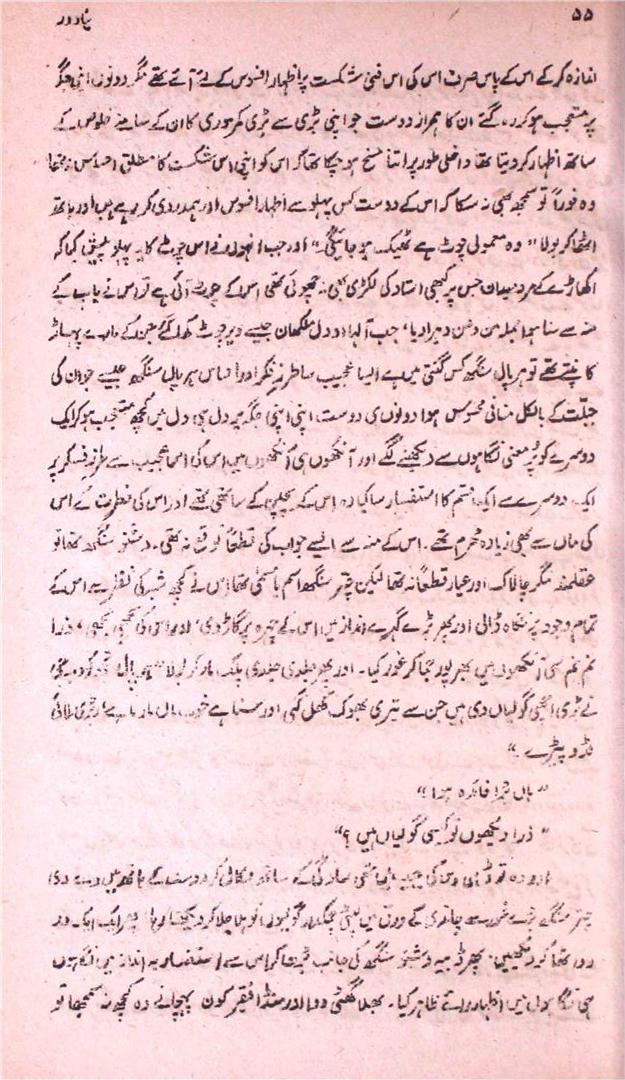 ۵۵
نیا دور
اندازہ کر کے اس کے پاس صرف اس کی اس فنی شکست پر اظہار افسوس کے لئے آئے تھے مگر دونوں اپنی جگہ
پر متعجب ہو کر رہ گئے ان کا ہمراز دوست جو اپنی بڑی سے بڑی کمزوری کا ان کے سامنے خلوص کے
ساتھ اظہار کر دیتا تھا داخلی طور پر اتنا مسخ ہو چکا تھا کہ اس کو اپنی اس شکست کا مطلق احساس نہ تھا
وہ فوراً تو سمجھ بھی نہ سکا کہ اس کے دوست کس پہلو سے اظہار افسوس اور ہمدردی کر رہے ہیں اور ہاتھ
اٹھا کر بولا "وہ معمولی چوٹ ہے ٹھیک ہو جائیگی۔" اور جب انہوں نے اس چوٹ کا یہ پہلو پیش کیا کہ
اکھاڑے کے مرد میدان جس پر کبھی استاد کی لکڑی بھی نہ چھوئی تھی اس کے چوٹ آئی ہے تو اس نے باپ کے
منہ سے سنا ہوا جملہ من وعن دہرا دیا، جب آلہا اودل ملکھان جیسے ویر چوٹ کھا گئے جن کے مارے پہاڑ
کانپتے تھے تو ہرپال سنگھ کس گنتی میں ہے ایسا عجیب سا طرز فکر اور قیاس ہرپال سنگھ جیسے جوان کی
جبلّت کے بالکل منافی محسوس ہوا دونوں ہی دوست اپنی اپنی جگہ پر دل ہی دل میں کچھ متعجب ہو کر ایک
دوسرے کو پُر معنی نگاہوں سے دیکھنے لگے اور آنکھوں ہی آنکھوں میں اس کی اس عجیب سے طرز فکر پر
ایک دوسرے سے ایک قسم کا استفسار سا کیا وہ اس کے بچپن کے ساتھی تھے اور اس کی فطرت سے اس
کی ماں سے بھی زیادہ محرم تھے۔ اس کے منہ سے ایسے جواب کی قطعاً توقع نہ تھی۔ دشنو سنگھ تھا تو
عقلمند مگر چالاک اور عیار قطعاً نہ تھا لیکن چتر سنگھ اسم با سمیٰ تھا اس نے کچھ شہر کی نظر سے اس کے
تمام وجود پر نگاہ ڈالی اور پھر بڑے گہرے انداز میں اس کے چہرہ پر گاڑ دی، اور اس کی بجھی بجھی، ذرا
نم نم سی آنکھوں میں بھر پور جما کر غور کیا۔ اور پھر جلدی جلدی پلک مار کر بولا
نے بڑی اچھی گولیاں دی ہیں جن سے تیری بھوک کھل گئی اور سنا ہے خوب مال مار رہا ہے
لڈو پیڑے۔"
"ہاں بڑا فائدہ ہوا۔"
"ذرا دیکھوں تو کیسی گولیاں ہیں؟"
اور وہ تو ڈبی اس کی جیب میں تھی سادگی کے ساتھ نکال کر دوست کے ہاتھ میں دے دی
چتر سنگھ بڑے غور سے چاندی کے ورق میں لپٹی چمکدار گولیوں کو ہلا جلا کر دیکھتا رہا پھر ایک ایک دو
دو اٹھا کر دیکھیں، پھر ڈبیہ دشنو سنگھ کی جانب بڑھا کر اس سے استفساریہ انداز میں نگاہوں
ہی نگاہوں میں اظہار رائے ظاہر کیا۔ بھلا گھٹی دوا اور منڈا فقیر کون پہچانے وہ کچھ نہ سمجھا تو